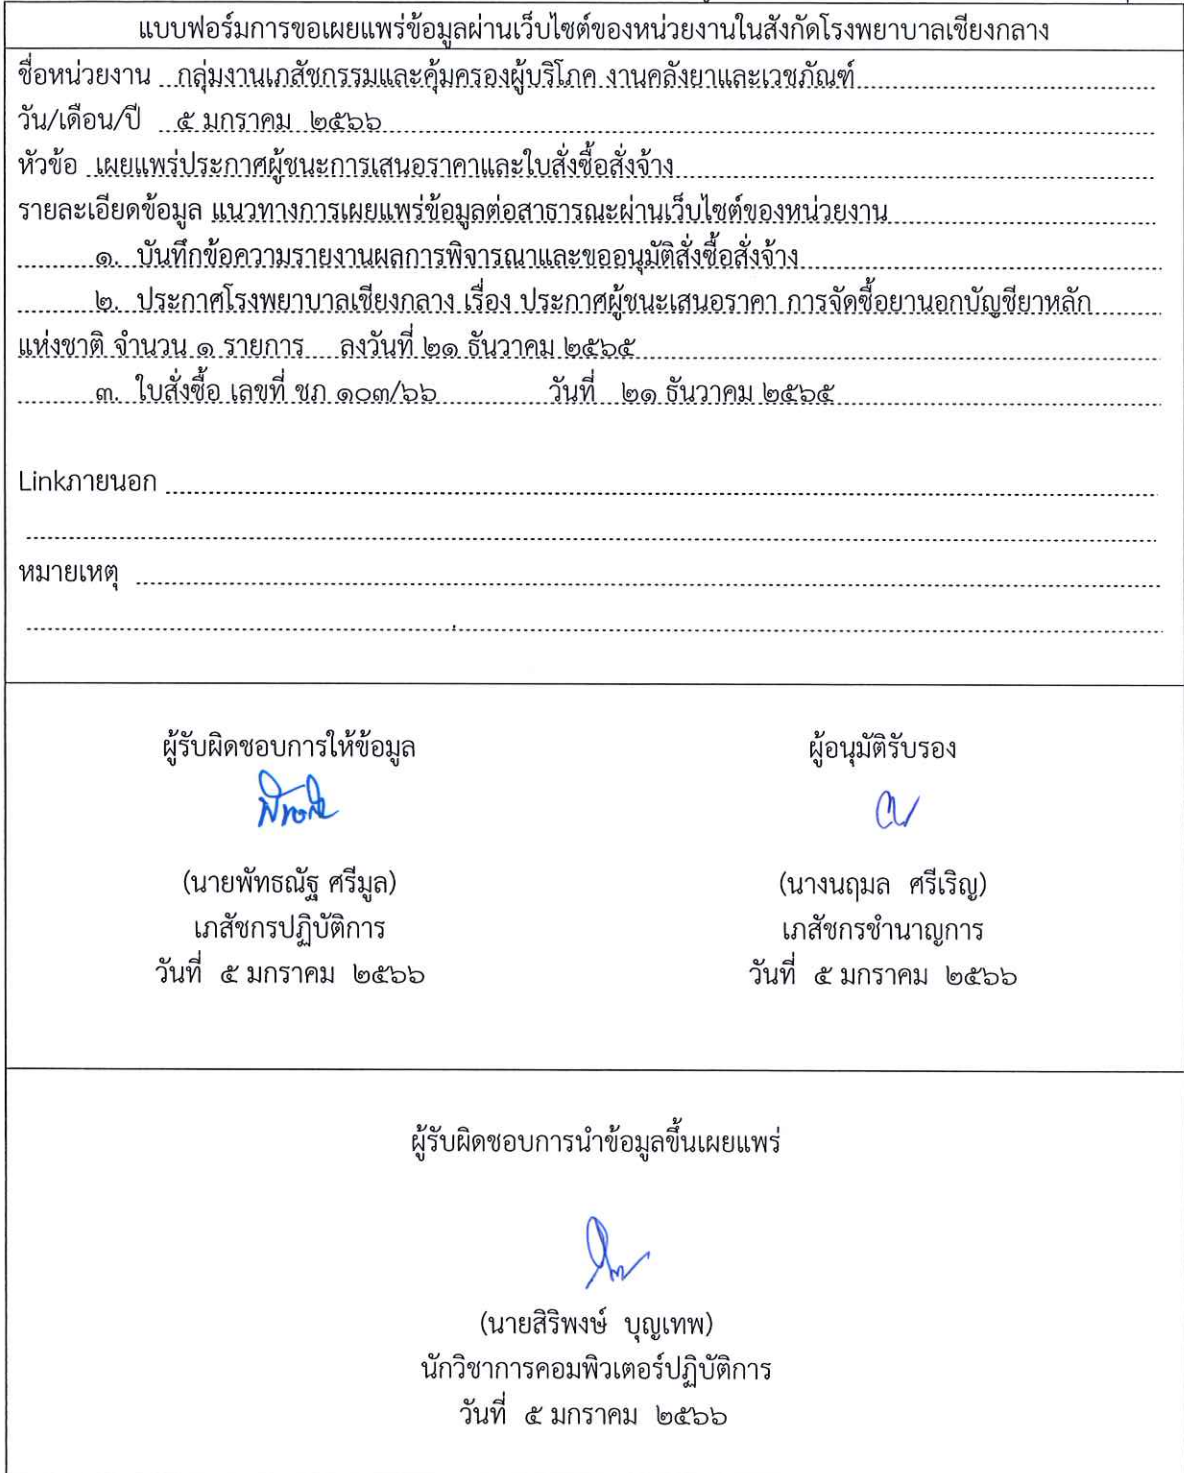 แบบฟอร์มการขอเผยแพร่ข้อมูลผ่านเว็บไซต์ของหน่วยงานในสังกัดโรงพยาบาลเชียงกลาง
ชื่อหน่วยงาน กลุ่มงานเภสัชกรรมและคุ้มครองผู้บริโภค งานคลังยาและเวชภัณฑ์
วัน/เดือน/ปี ๕ มกราคม ๒๕๖๖
หัวข้อ เผยแพร่ประกาศผู้ชนะการเสนอราคาและใบสั่งซื้อสั่งจ้าง
รายละเอียดข้อมูล แนวทางการเผยแพร่ข้อมูลต่อสาธารณะผ่านเว็บไซต์ของหน่วยงาน
๑. บันทึกข้อความรายงานผลการพิจารณาและขออนุมัติสั่งซื้อสั่งจ้าง
๒. ประกาศโรงพยาบาลเชียงกลาง เรื่อง ประกาศผู้ชนะเสนอราคา การจัดซื้อยานอกบัญชียาหลัก
แห่งชาติ จำนวน ๑ รายการ ลงวันที่ ๒๑ ธันวาคม ๒๕๖๕
๓. ใบสั่งซื้อ เลขที่ ชภ ๑๐๓/๖๖ วันที่ ๒๑ ธันวาคม ๒๕๖๕
Linkภายนอก
หมายเหตุ
ผู้รับผิดชอบการให้ข้อมูล ผู้อนุมัติรับรอง
(นายพัทธณัฐ ศรีมูล) (นางนฤมล ศรีเริญ)
เภสัชกรปฏิบัติการ เภสัชกรชำนาญการ
วันที่ ๕ มกราคม ๒๕๖๖ วันที่ ๕ มกราคม ๒๕๖๖
ผู้รับผิดชอบการนำข้อมูลขึ้นเผยแพร่
(นายสิริพงษ์ บุญเทพ)
นักวิชาการคอมพิวเตอร์ปฏิบัติการ
วันที่ ๕ มกราคม ๒๕๖๖